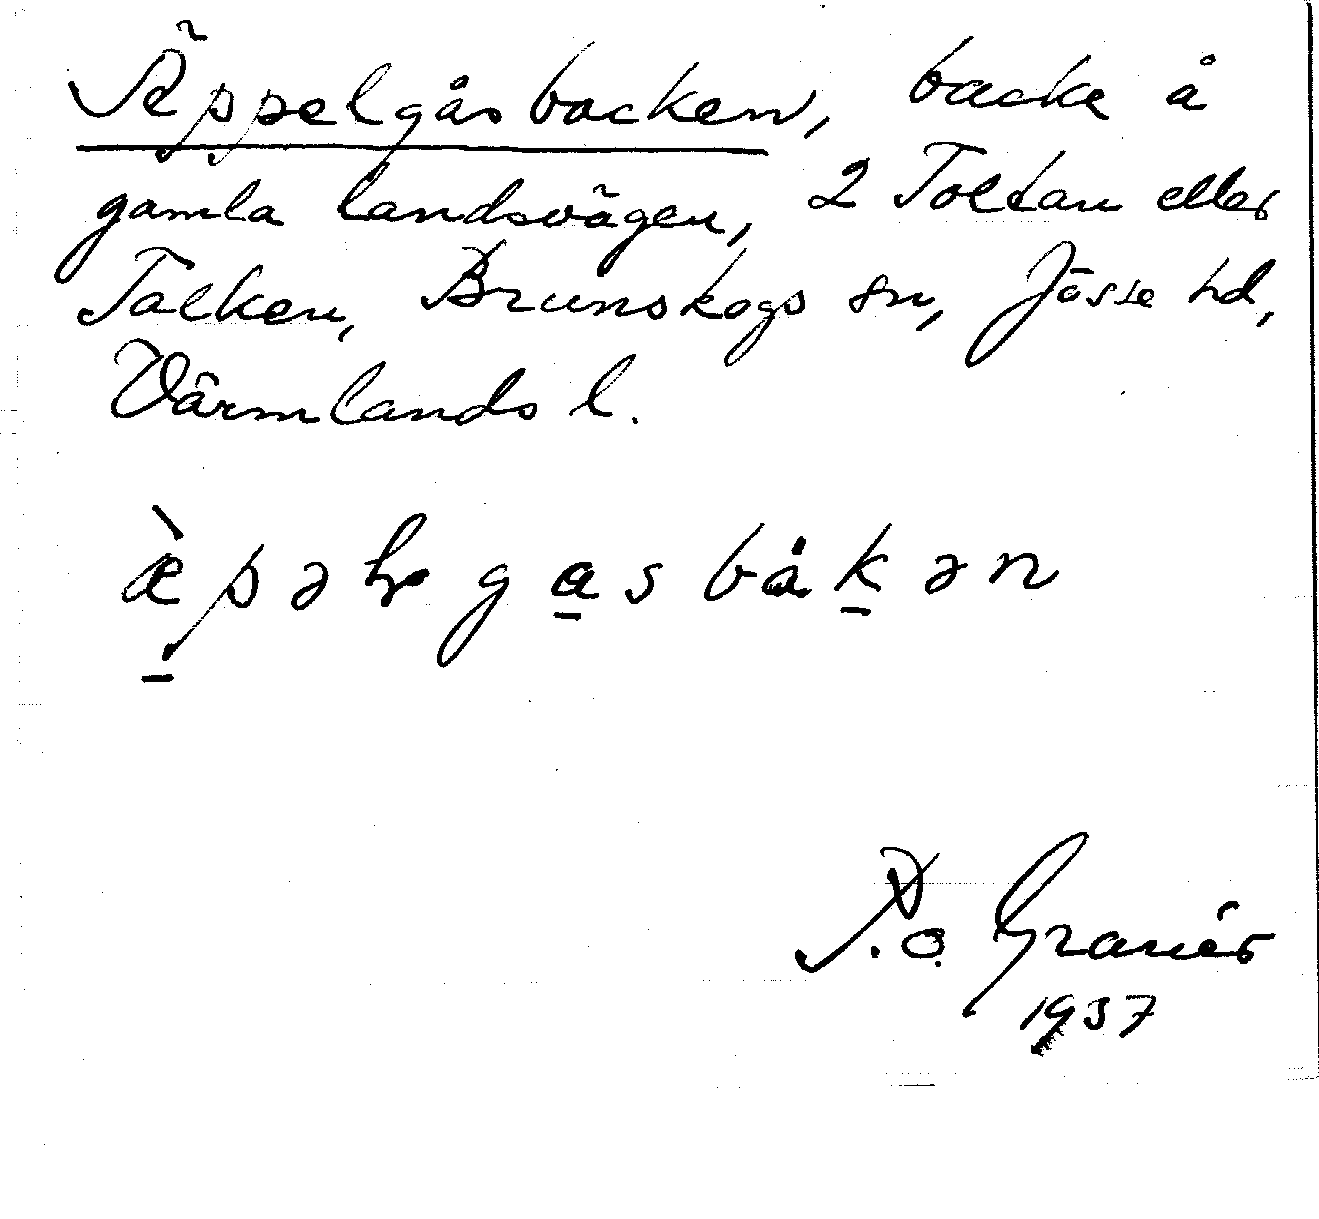 Äppelgåsbacken, backe å
gamla landsvägen, 2 Toltan eller
Talken, Brunskogs sn, Jösse hd,
Värmlands l.
æ̀pəɫgasbåkən
P.O. Granér
1937